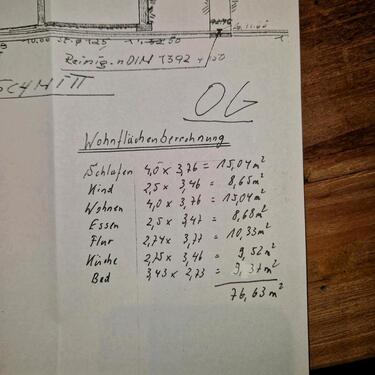 Reinig. n DIN 1392
OG
Wohnflächenberechnung
Schlafen 4,0 x 3,76 = 15,04 m²
Kind 2,5 x 3,46 = 8,65 m²
Wohnen 4,0 x 3,76 = 15,04 m²
Essen 2,5 x 3,47 = 8,68 m²
Flur 2,74 x 3,77 = 10,33 m²
Küche 2,75 x 3,46 = 9,52 m²
Bad 3,43 x 2,73 = 9,37 m²
76,63 m²